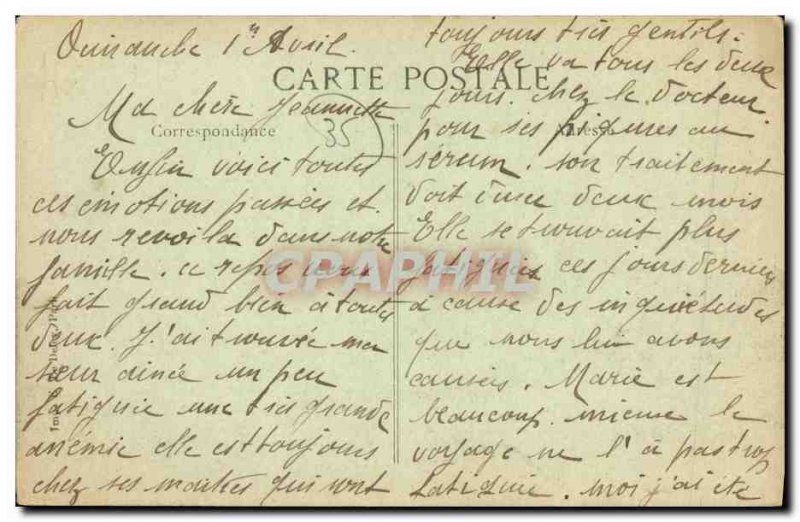 Dimanche 1er Avril.
CARTE POSTALE
Ma chère Jeannette
35
Correspondance
Adresse
Enfin voici toutes
ces émotions passées et
nous revoila dans notre
famille. ce repos
fait grand bien à toutes
deux. J'ai trouvée ma
sœur ainée un peu
fatiguée une très grande
anémie elle est toujours
chez ses maitres qui sont
toujours très gentils.
Elle va tous les deux
jours. chez le docteur
pour ses piqures au
sérum. son traitement
doit durer deux mois
Elle se trouvait plus
fatiguée ces jours derniers
à cause des inquiétudes
que nous lui avons
causées. Marie est
beaucoup mieux le
voyage ne l'à pas trop
fatiguée. moi j'ai été
CPAPHIL